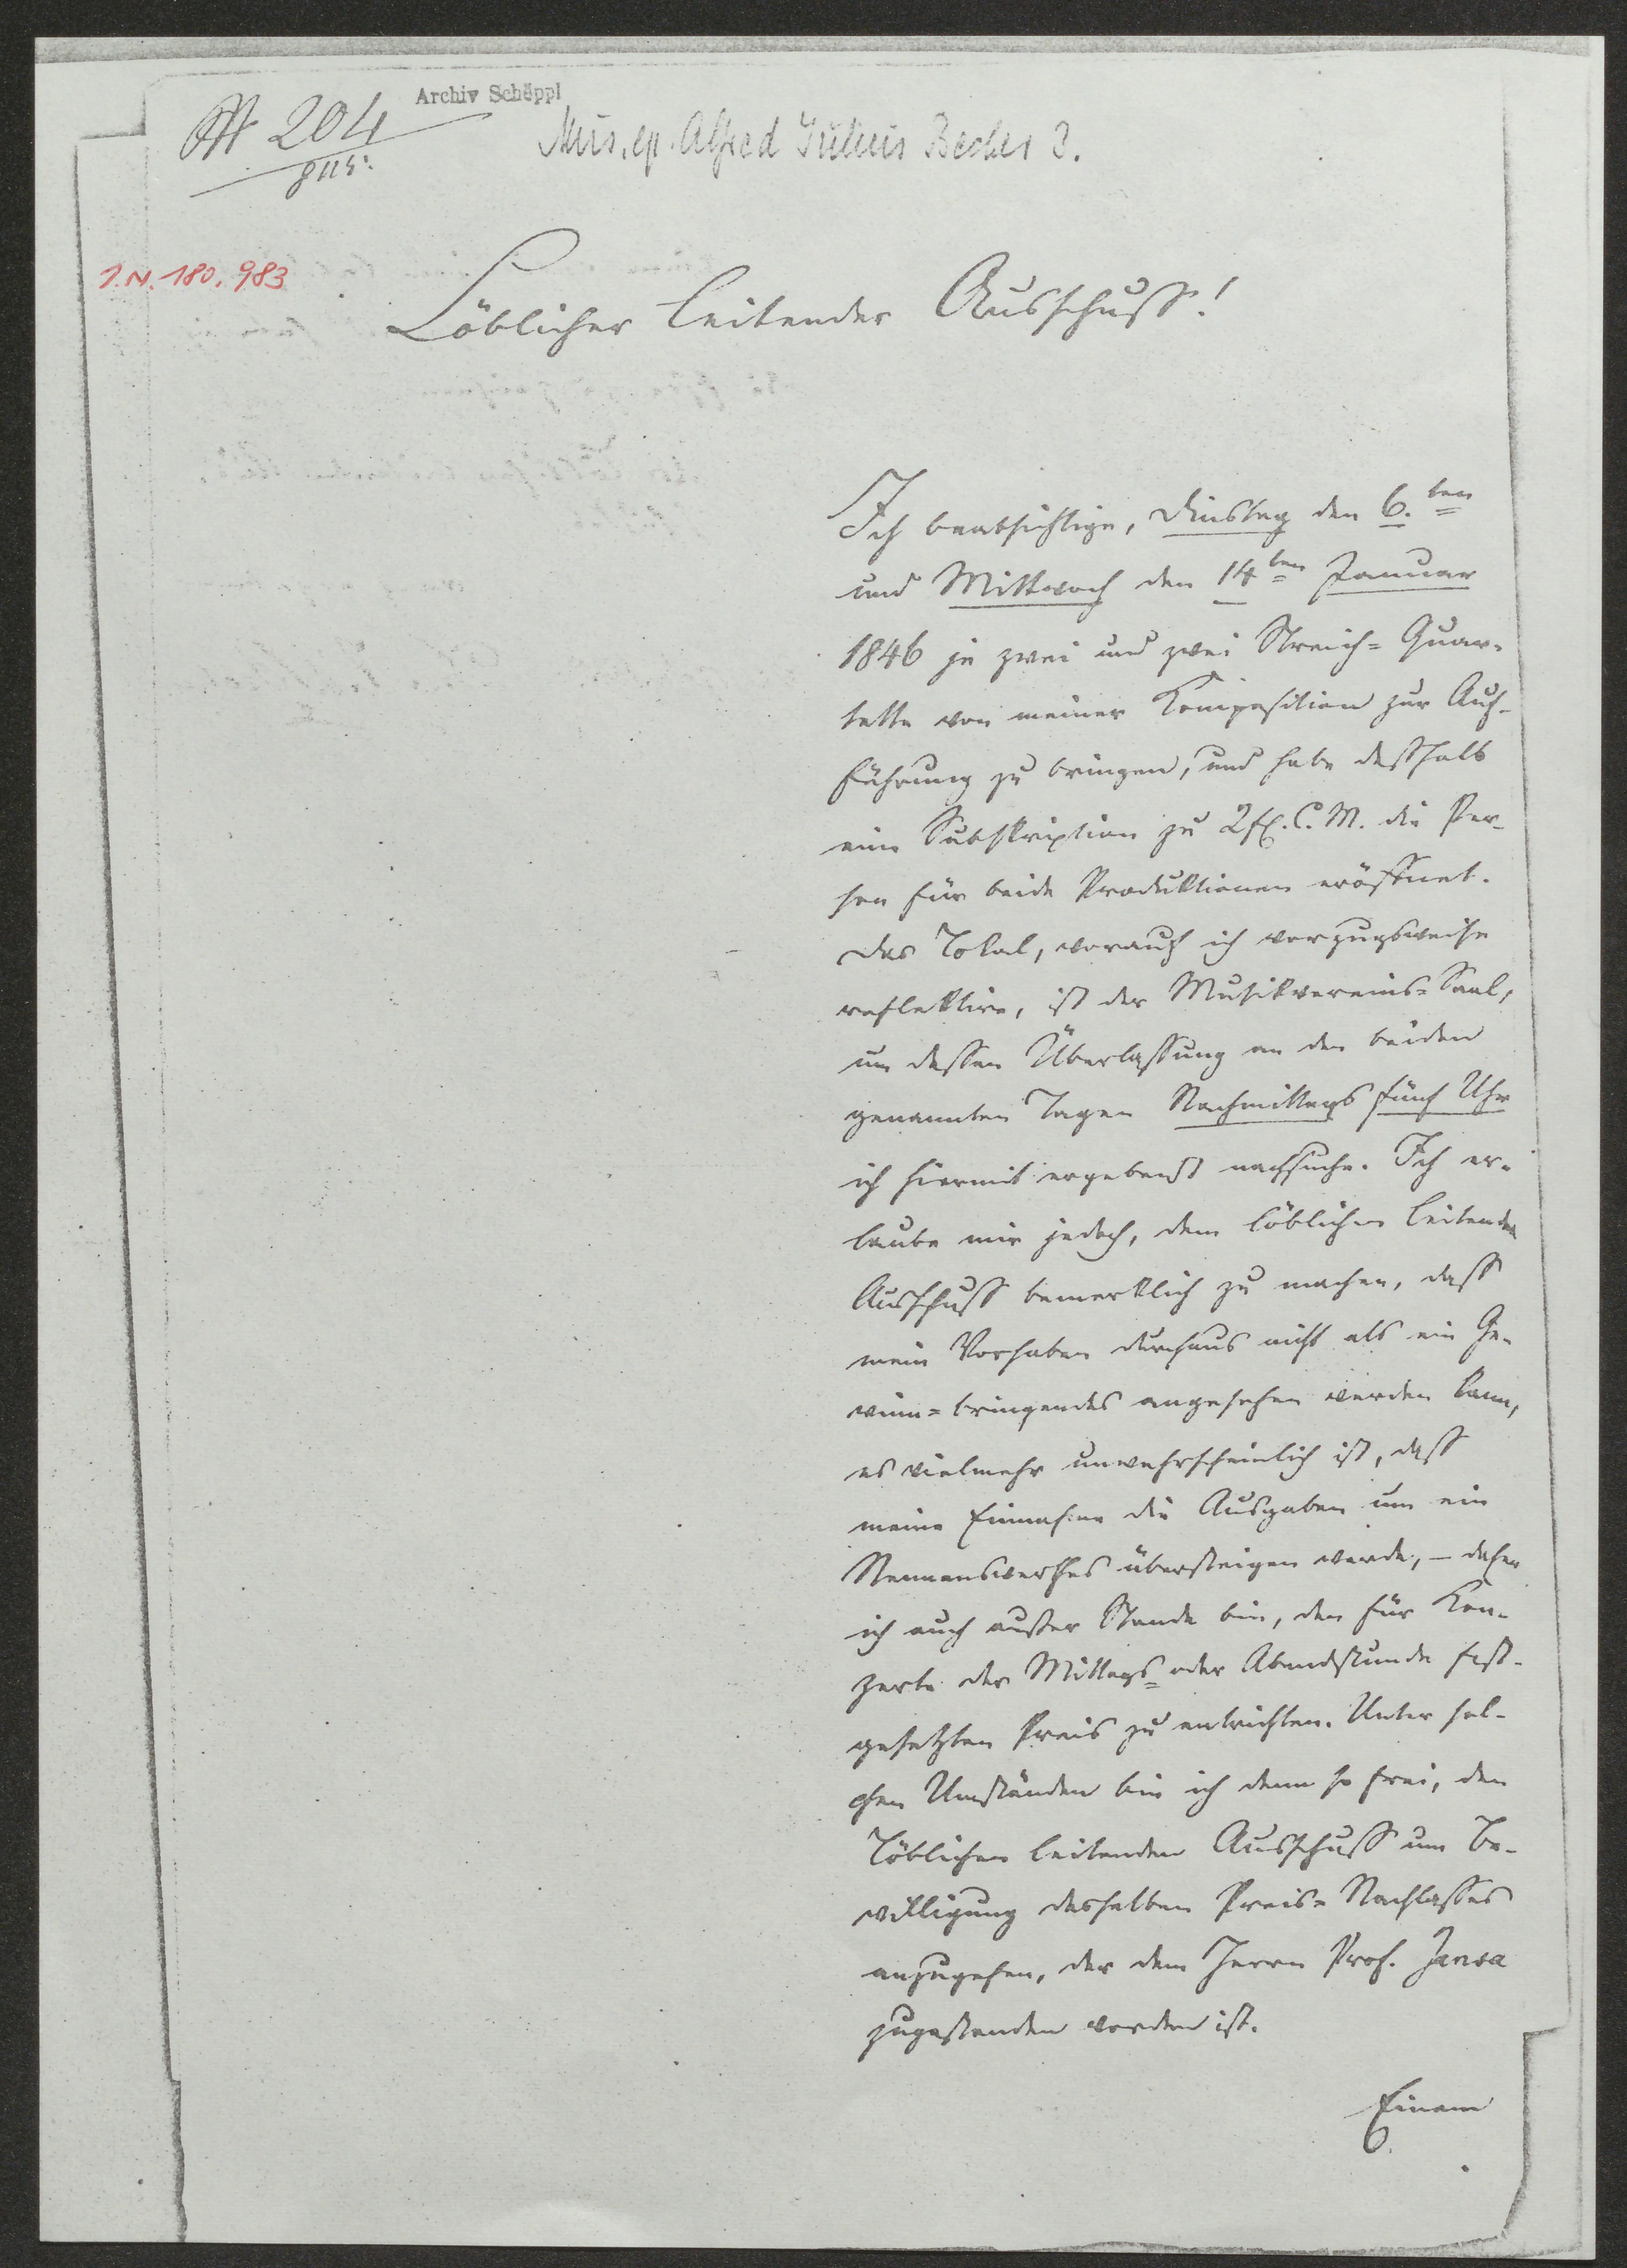 Archiv Schöppl
№ 204
845.
Mus. ep. Alfred Julius Becher 3.
I.N. 180.983
Löblicher leitender Ausschuß!
Ich beabsichtige, Dinstag den 6.ten
und Mittwoch den 14ten Januar
1846 je zwei und zwei Streich-Quar-
tette von meiner Komposition zur Auf-
führung zu bringen, und habe deßhalb
eine Subskription zu 2 fl. C. M. die Per-
son für beide Produktionen eröffnet.
Das Lokal, worauf ich vorzugsweise
reflektire, ist der Musikvereins-Saal,
um dessen Überlassung an den beiden
genannten Tagen Nachmittags fünf Uhr
ich hiermit ergebenst nachsuche. Ich er-
laube mir jedoch, dem löblichen leitenden
Ausschuß bemerklich zu machen, daß
mein Vorhaben durchaus nicht als ein Ge-
winn-bringendes angesehen werden kann,
es vielmehr unwahrscheinlich ist, daß
meine Einnahme die Ausgaben um ein
Nennenswerthes übersteigen werde, – daher
ich auch außer Stande bin, den für Kon-
zerte der Mittags- oder Abendstunde fest-
gesetzten Preis zu entrichten. Unter sol-
chen Umständen bin ich denn so frei, den
Löblichen leitenden Ausschuß um Be-
willigung desselben Preis-Nachlasses
anzugehen, der dem Herrn Prof. Jansa
zugestanden worden ist.
Einem